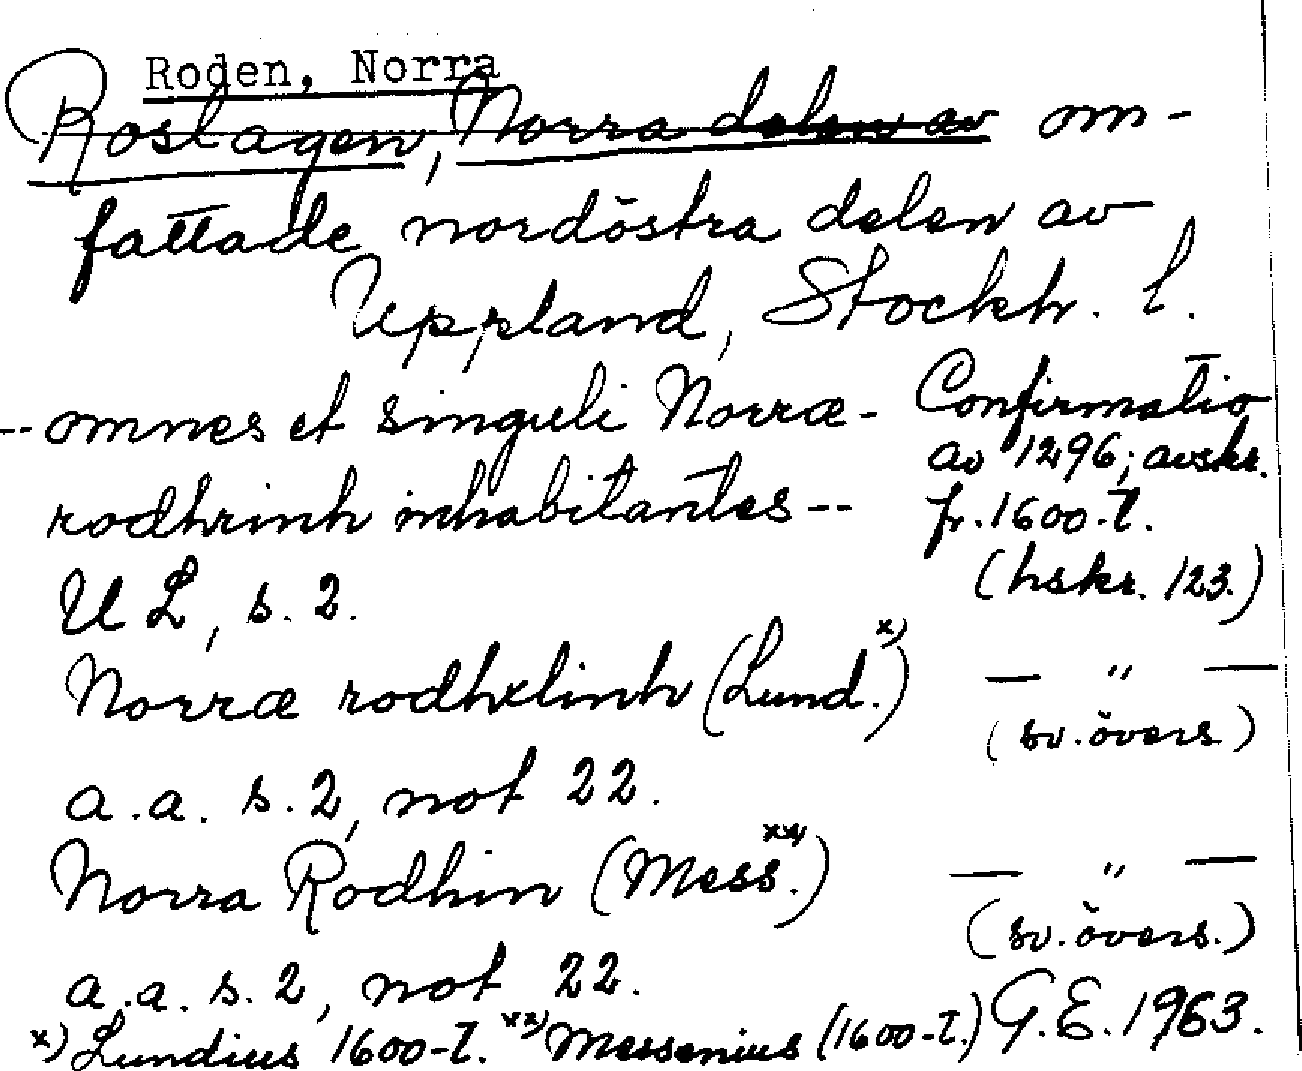 Roden, Norra
Roslagen, Norra delen av om-
fattade nordöstra delen av
Uppland, Stockh. l.
-- omnes et singuli Norræ- Confirmatio
av 1296; avskr.
rodhrinh inhabitantes -- fr. 1600-t.
(hskr. 123.)
UL, s. 2.
Norræ rodhelinh (Lund.x)) — " —
(sv. övers)
a.a. s. 2, not 22.
Norra Rodhin (Mess.xx)) — " —
(sv. övers.)
a.a. s. 2, not 22.
x) Lundius 1600-t. xx) Messenius (1600-t.) G.E. 1963.